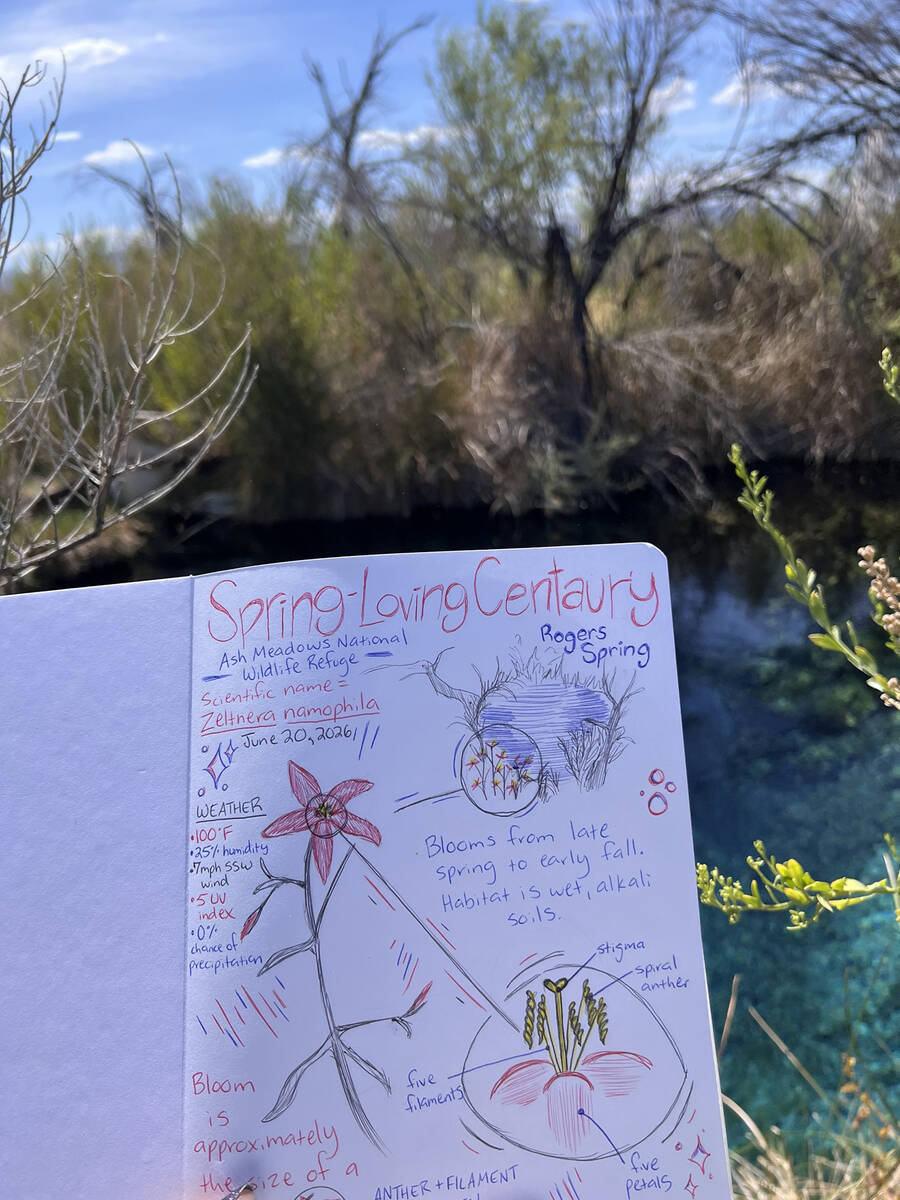 Spring-Loving Centaury
Ash Meadows National
Wildlife Refuge
Rogers
Spring
Scientific name =
Zeltnera namophila
June 20, 2026
WEATHER
• 100°F
• 25% humidity
• 7mph SSW
wind
• 5 UV
index
• 0%
chance of
precipitation
Blooms from late
spring to early fall.
Habitat is wet, alkali
soils.
stigma
spiral
anther
five
filaments
five
petals
Bloom
is
approximately
the size of a
ANTHER + FILAMENT